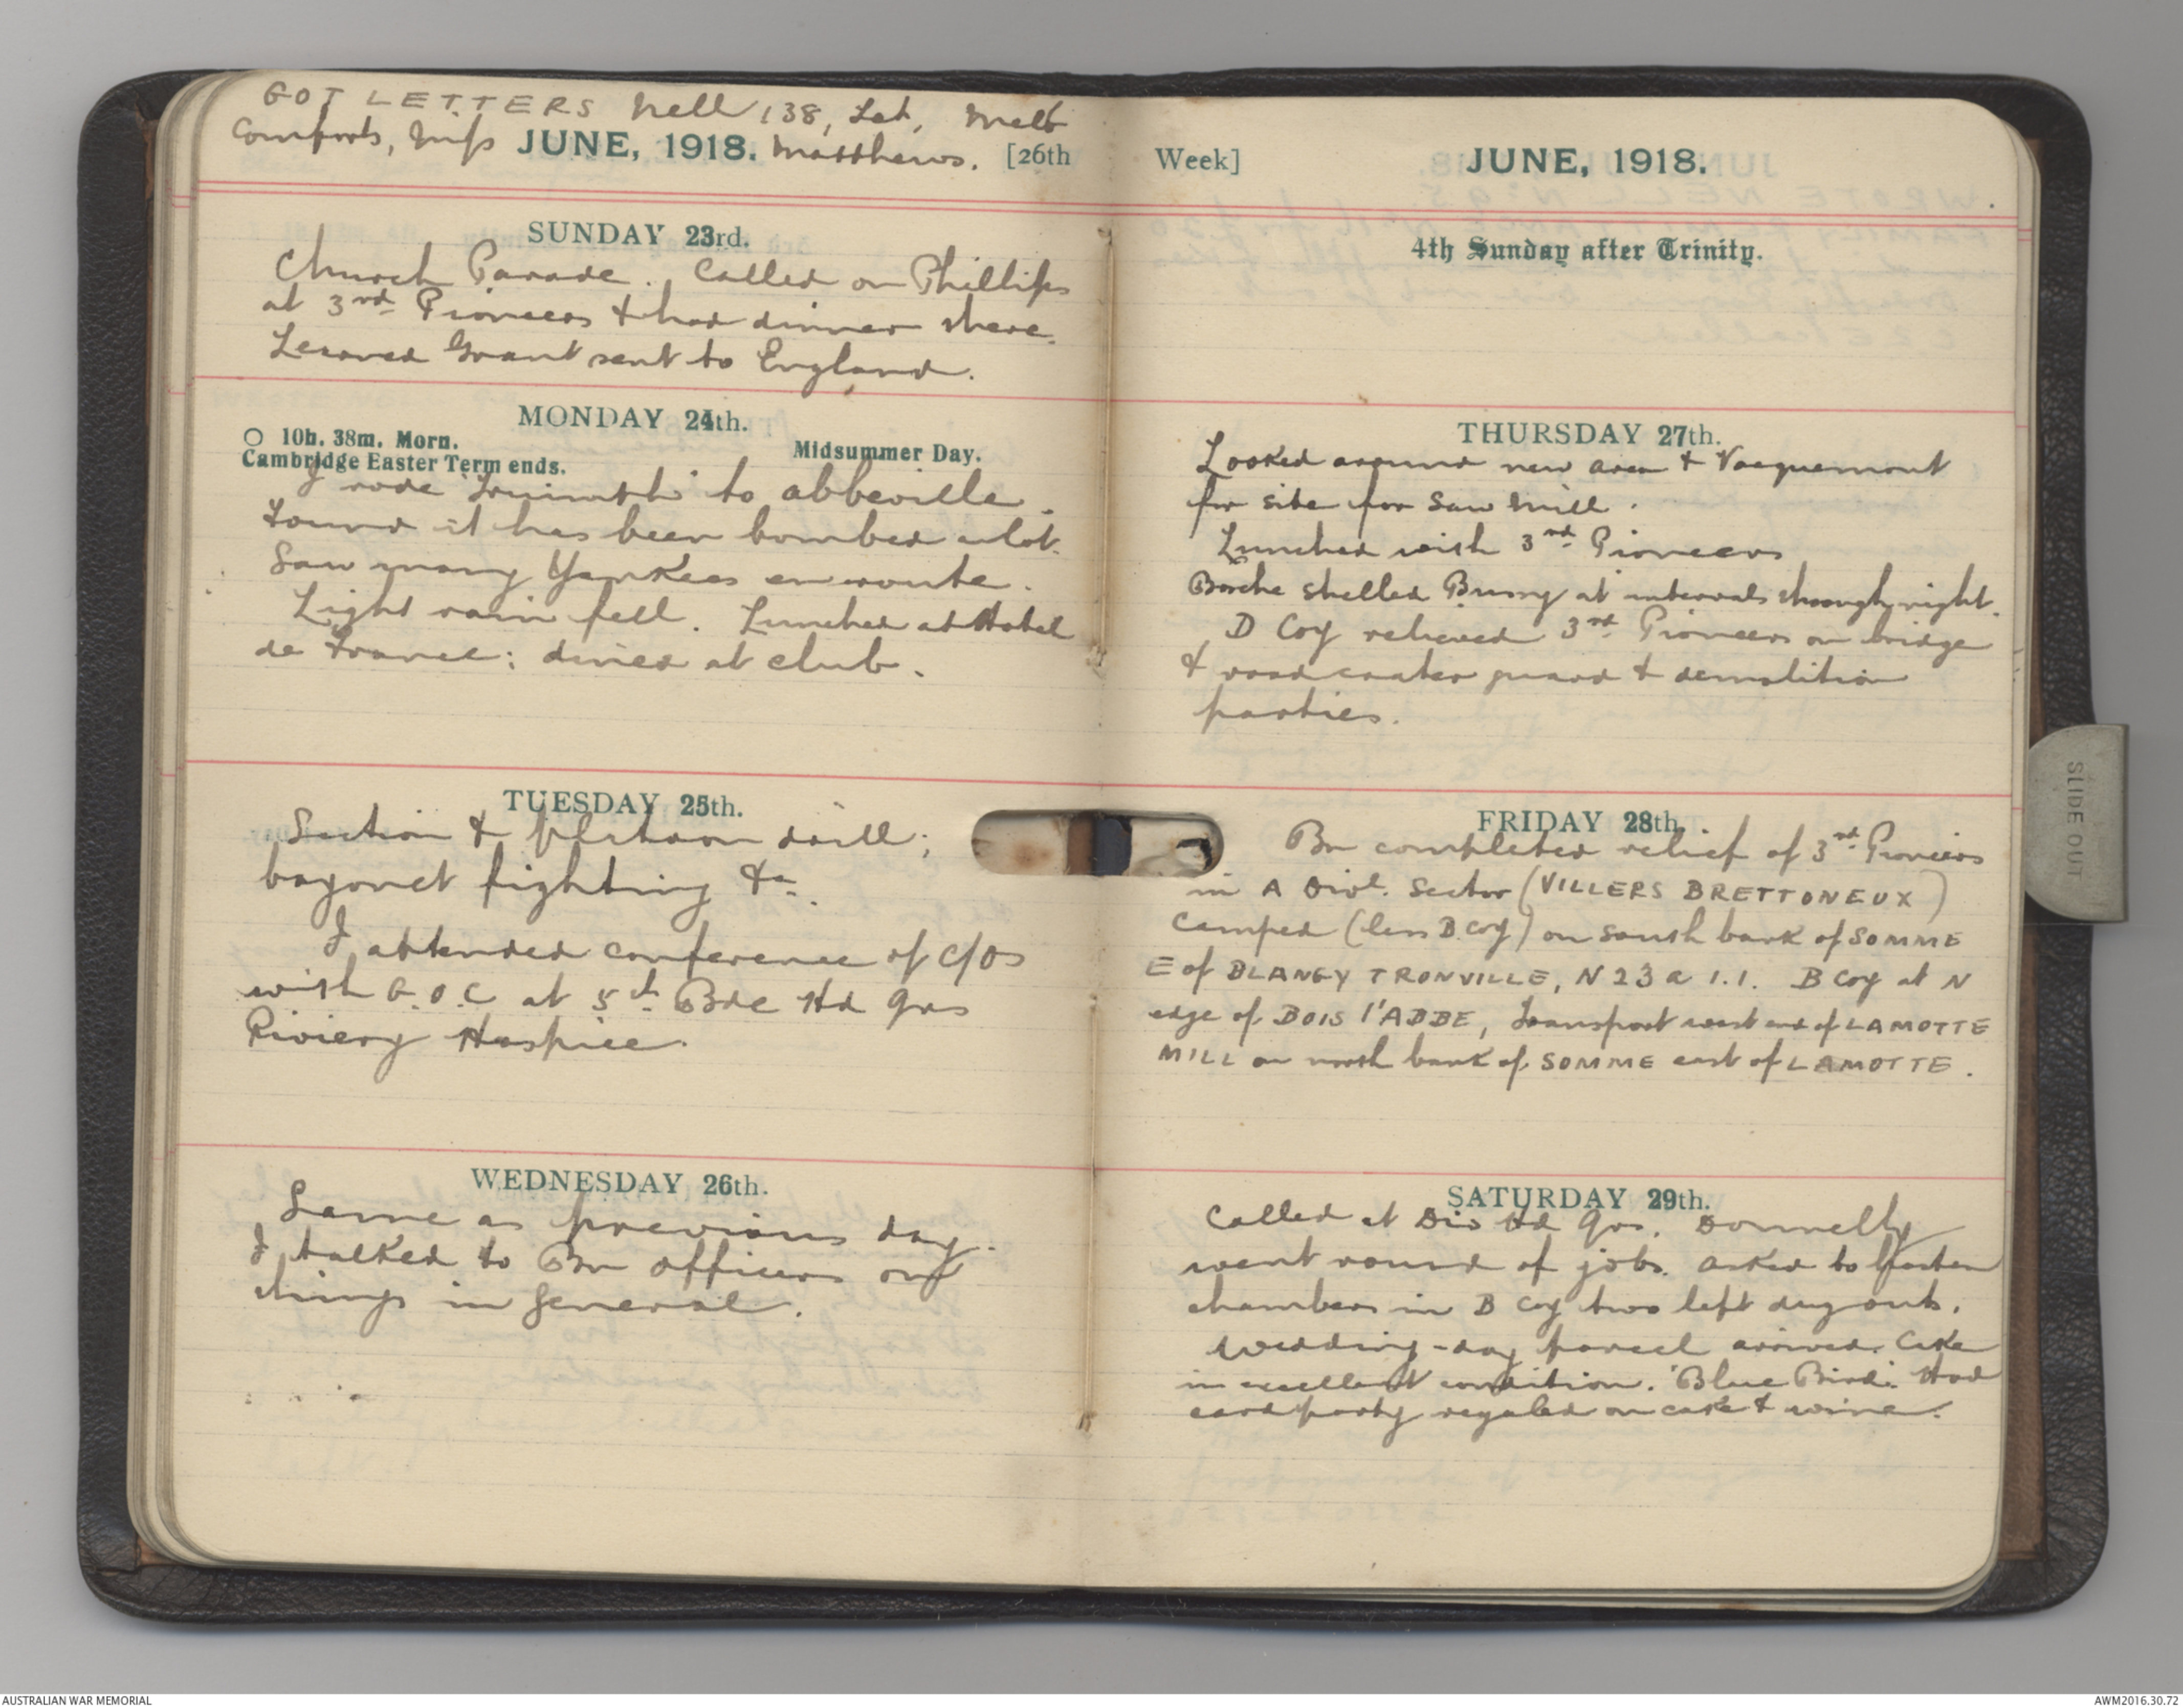 GOT LETTERS Nell 138, Let, Melb
Comforts, Miss Matthews.
JUNE, 1918. [26th
SUNDAY 23rd.
Church Parade. Called on Phillips
at 3rd Pioneers & had dinner there.
Learned Grant sent to England.
MONDAY 24th.
10h. 38m. Morn.
Midsummer Day.
Cambridge Easter Term ends.
I rode to Abbeville.
Found it has been bombed a lot.
Saw many Yankees en route.
Light rain fell. Lunched at Hotel
de France; dined at club.
TUESDAY 25th.
Section & platoon drill;
bayonet fighting &c.
I attended conference of C/Os
with G.O.C at 5th Bde Hd Qrs
Riviery Hospice.
WEDNESDAY 26th.
Same as previous day.
I talked to Bn officers on
things in general.
Week]
JUNE, 1918.
4th Sunday after Trinity.
THURSDAY 27th.
Looked around new area & Vacquemont
for site for Saw Mill.
Lunched with 3rd Pioneers
Bosche shelled Bussy at intervals through night.
D Coy relieved 3rd Pioneers on bridge
& road crater guard & demolition
parties.
FRIDAY 28th.
Bn completed relief of 3rd Pioneers
in A Divl. Sector (VILLERS BRETTONEUX)
Camped (less B. Coy) on south bank of SOMME
E of BLANGY TRONVILLE, N 23 a 1.1. B Coy at N
edge of BOIS l'ABBE, Transport west end of LAMOTTE
MILL on north bank of SOMME east of LAMOTTE.
SATURDAY 29th.
Called at Div Hd Qrs. Donnelly
went round of jobs. Asked to hasten
chambers in B Coy two left dug outs.
Wedding-day parcel arrived. Cake
in excellent condition. 'Blue Bird'. Had
card party regaled on cake & wine.
SLIDE OUT
AUSTRALIAN WAR MEMORIAL
AWM2016.30.72